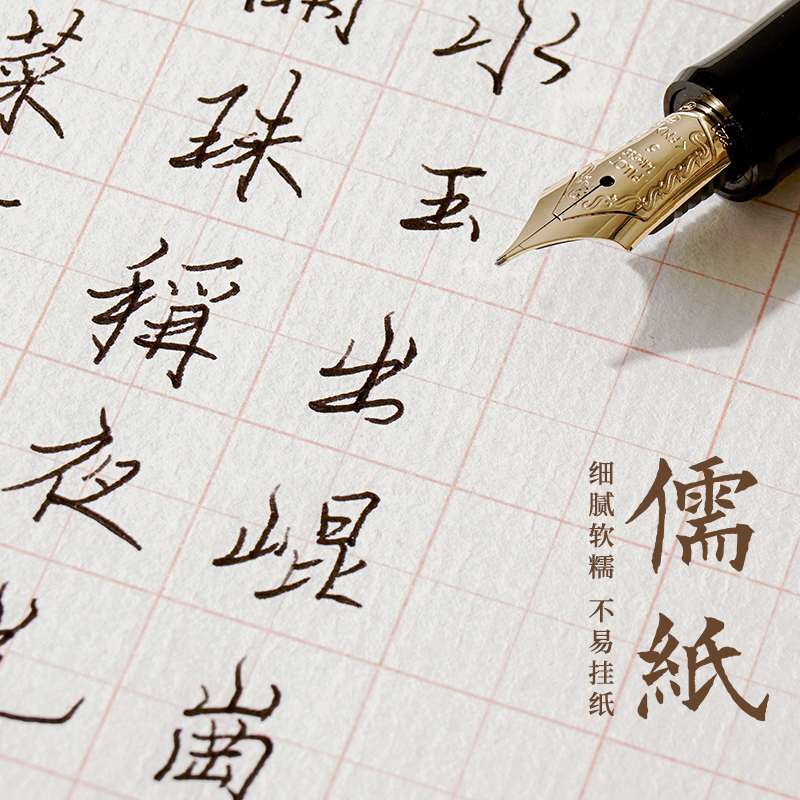 水玉出崐崗
珠稱夜光
菜
PILOT
儒紙
细腻软糯 不易挂纸